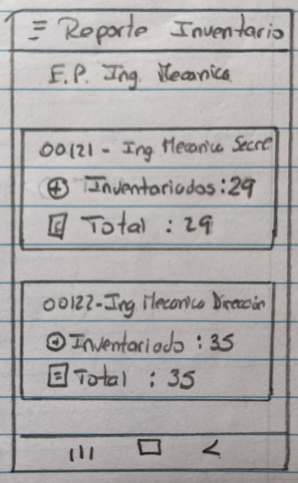 Reporte Inventario
E.P. Ing. Mecanica
00121 - Ing Mecanica Secre
Inventariados : 29
Total : 29
00122 - Ing Mecanica Dirección
Inventariado : 35
Total : 35